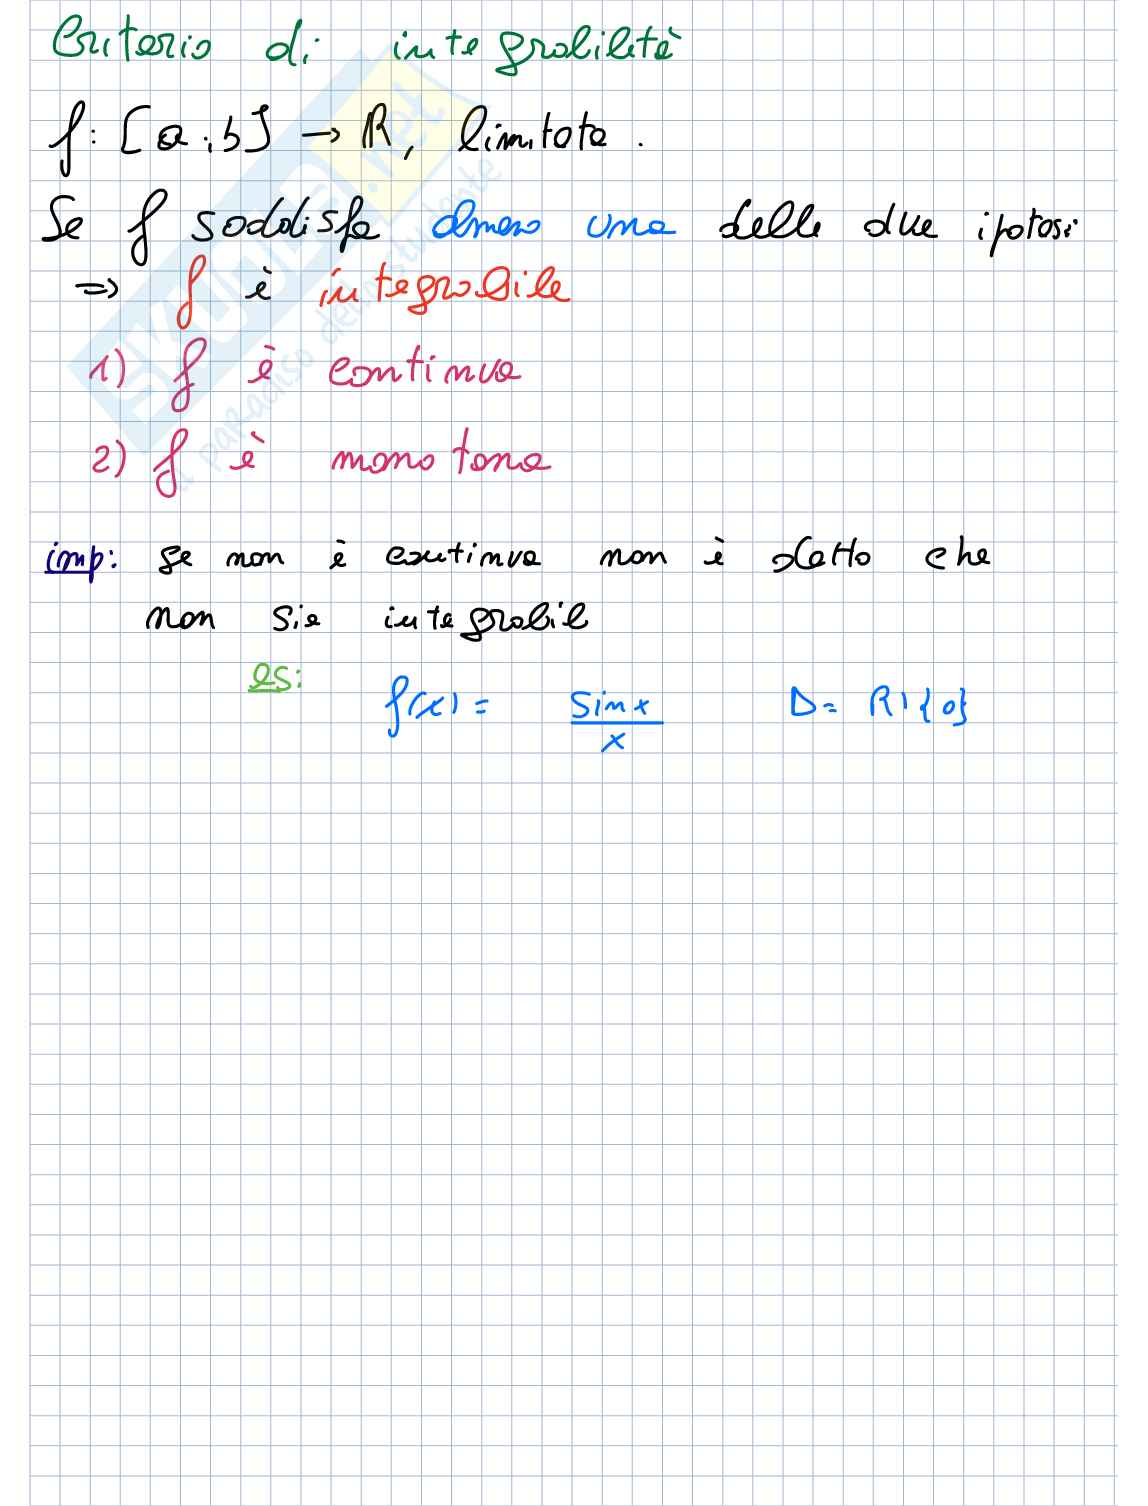 Criterio di integrabilità
f: [a;b] → R, limitata.
Se f soddisfa almeno una delle due ipotesi
⇒ f è integrabile
1) f è continua
2) f è monotona
imp: se non è continua non è detto che
non sia integrabil
es: f(x) = sin x / x D = R \ {0}
SKUOLA.net
il paradiso dello studente